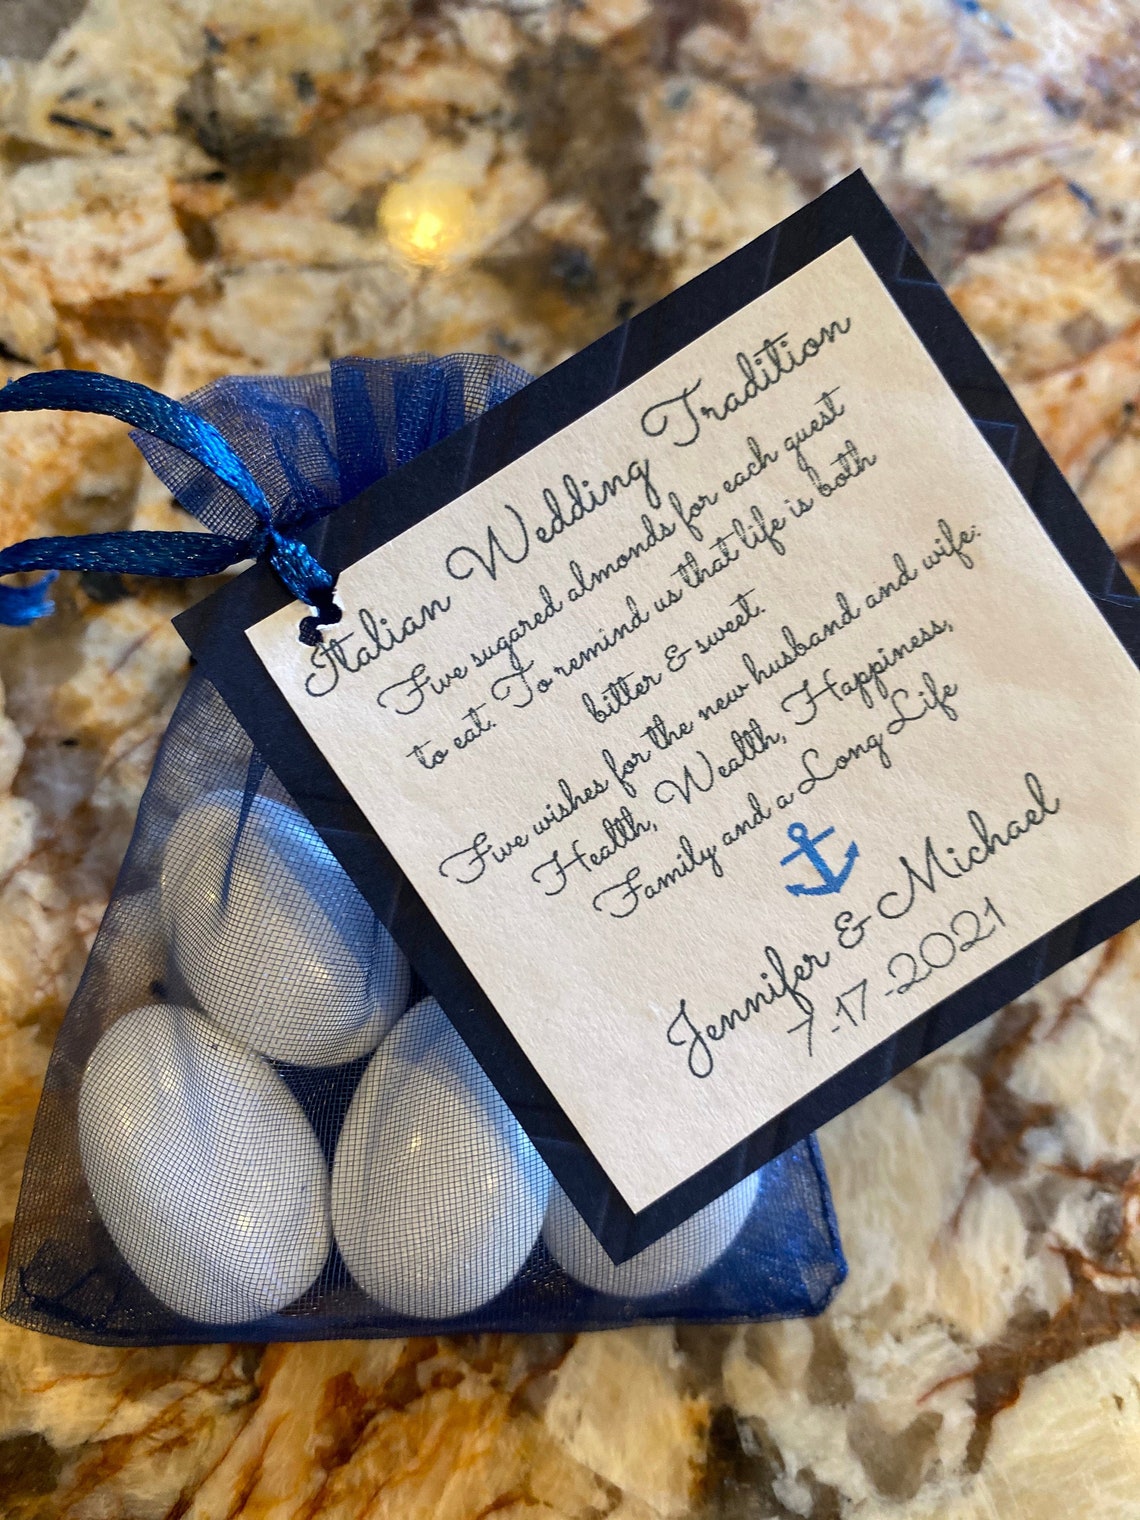 Italian Wedding Tradition
Five sugared almonds for each guest
to eat. To remind us that life is both
bitter & sweet.
Five wishes for the new husband and wife:
Health, Wealth, Happiness,
Family and a Long Life
Jennifer & Michael
7-17-2021